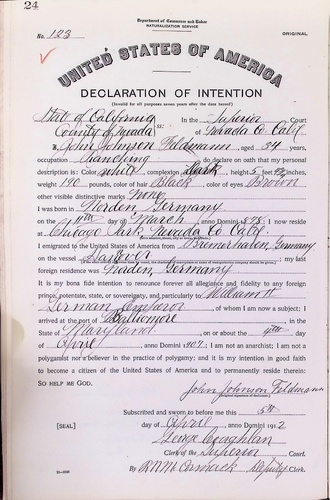 24
Department of Commerce and Labor
NATURALIZATION SERVICE
No. 123
ORIGINAL
UNITED STATES OF AMERICA
DECLARATION OF INTENTION
(Invalid for all purposes seven years after the date hereof)
State of California
County of Nevada ss:
In the Superior Court
of Nevada Co. Calif
I, John Johnson Feldmann, aged 34 years,
occupation Ranching, do declare on oath that my personal
description is: Color white, complexion Dark, height 5 feet inches,
weight 140 pounds, color of hair Black, color of eyes Brown
other visible distinctive marks None
I was born in Norden, Germany
on the 11th day of March, anno Domini 1878; I now reside
at Chicago Park Nevada Co Calif.
I emigrated to the United States of America from Bremerhaven, Germany
on the vessel Hanover; my last
foreign residence was Norden, Germany
It is my bona fide intention to renounce forever all allegiance and fidelity to any foreign
prince, potentate, state, or sovereignty, and particularly to William II
German Emperor, of whom I am now a subject; I
arrived at the port of Baltimore, in the
State of Maryland, on or about the day
of April, anno Domini 1907; I am not an anarchist; I am not a
polygamist nor a believer in the practice of polygamy; and it is my intention in good faith
to become a citizen of the United States of America and to permanently reside therein:
SO HELP ME GOD.
John Johnson Feldmann
(Original signature of declarant.)
Subscribed and sworn to before me this 5th
[SEAL] day of April, anno Domini 1912
George Coughlan
Clerk of the Superior Court.
By R.N. McCormack Deputy Clerk.